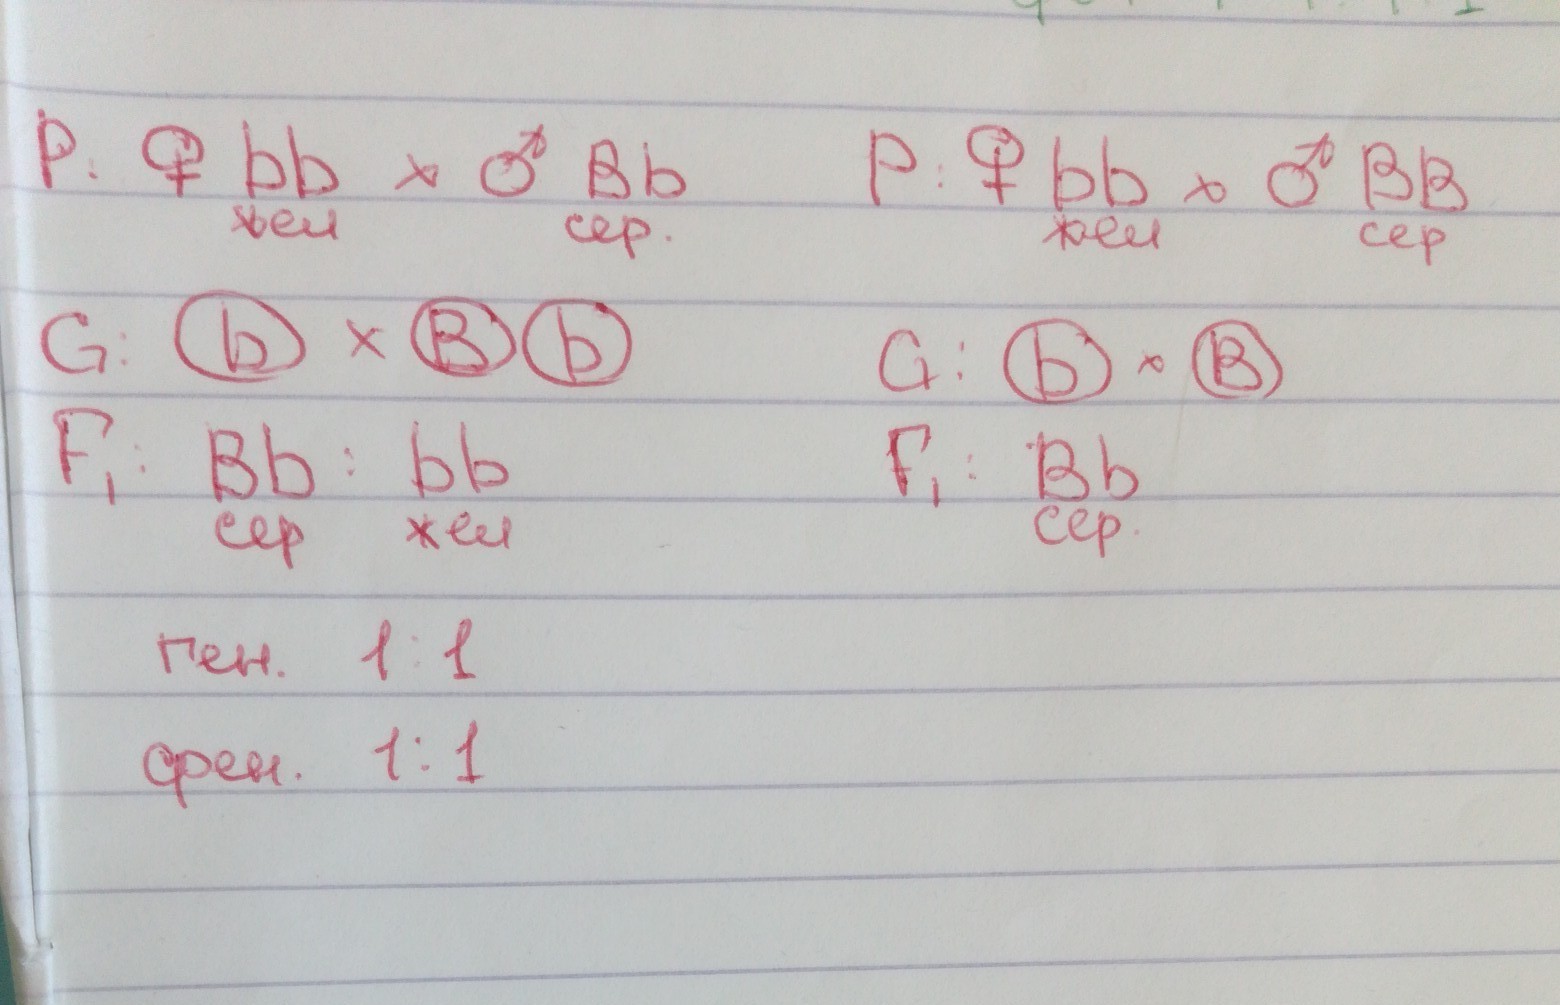 P: ♀ bb × ♂ Bb
жел сер.
G: b × B b
F₁: Bb : bb
сер жел
ген. 1:1
фен. 1:1
P: ♀ bb × ♂ BB
жел сер
G: b × B
F₁: Bb
сер.